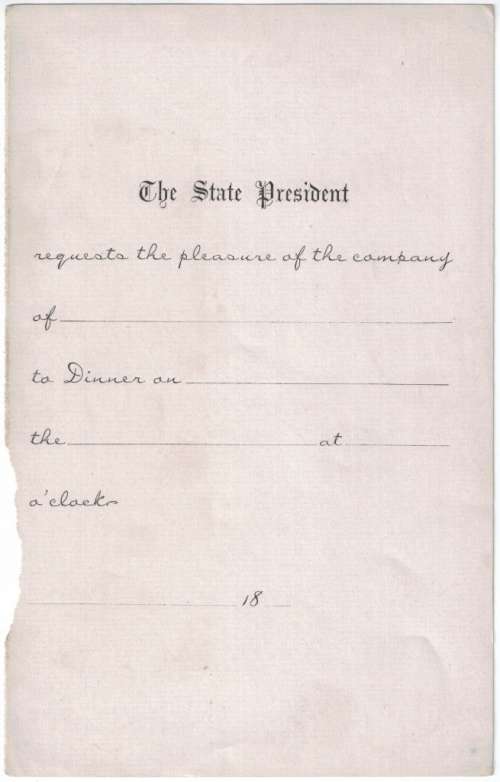 The State President
requests the pleasure of the company
of
to Dinner on
the at
o'clock
18